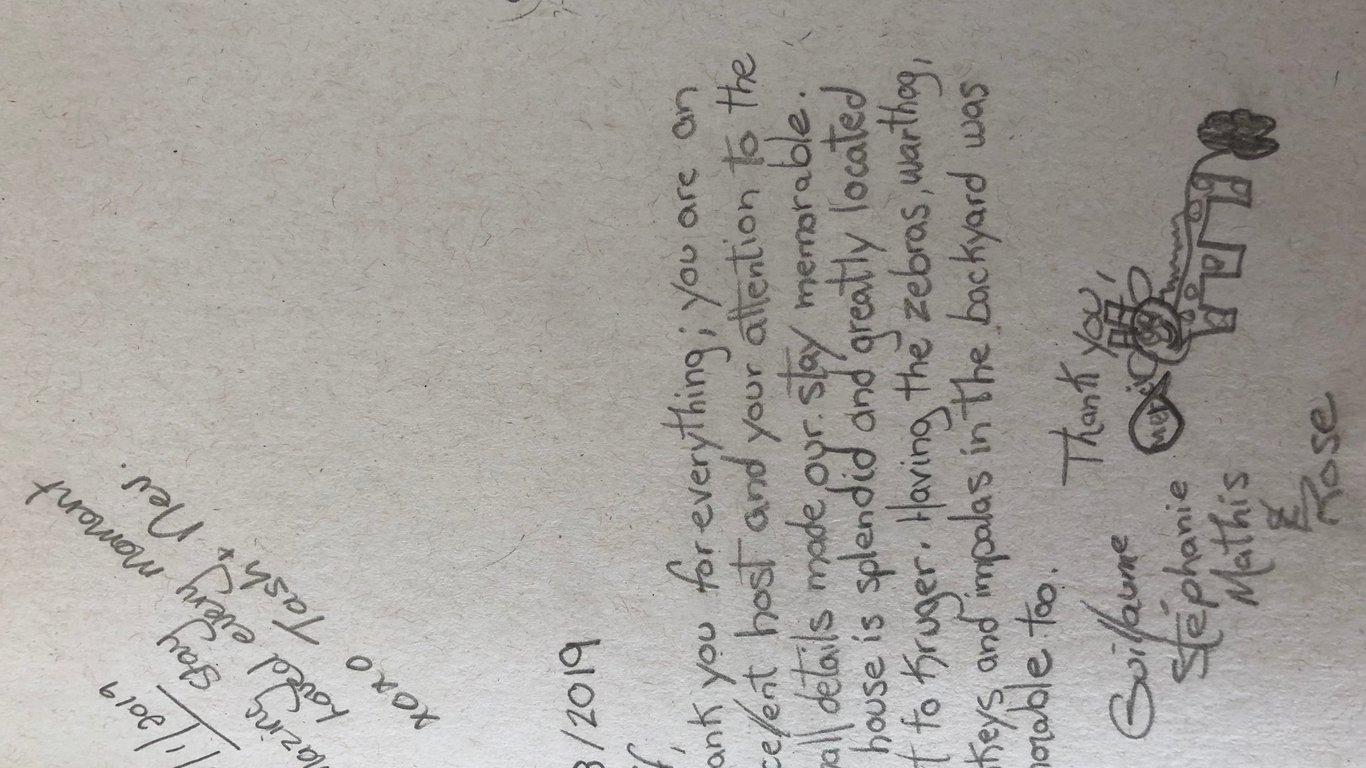 /2019
azing stay
Loved every moment
xoxo Tash + Nev.
/2019
ank you for everything; you are an
cellent host and your attention to the
all details made our stay memorable.
house is splendid and greatly located
t to Kruger. Having the zebras, warthog,
keys and impalas in the backyard was
orable too.
Thank you,
merci
Guillaume
Stéphanie
Mathis
&
Rose